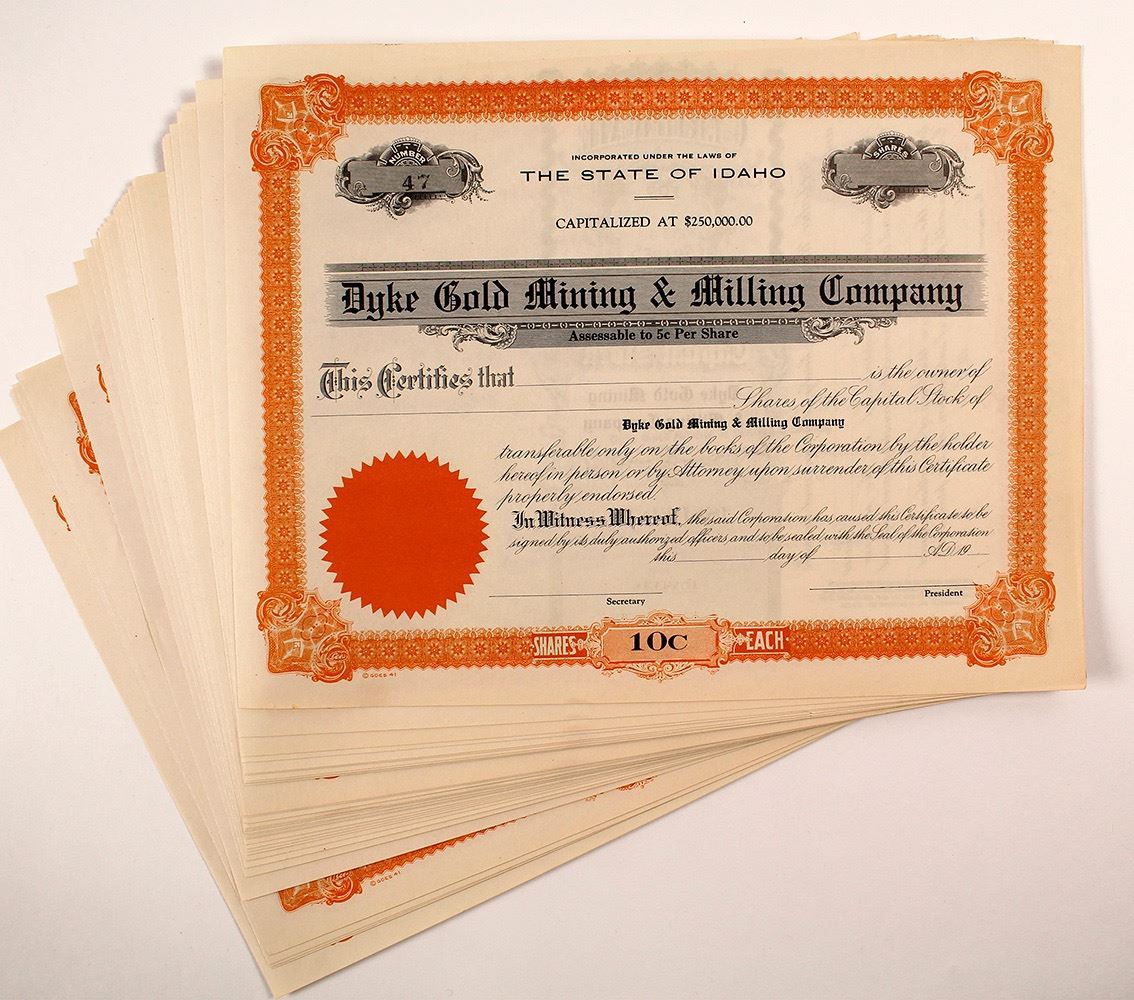 NUMBER
47
SHARES
INCORPORATED UNDER THE LAWS OF
THE STATE OF IDAHO
CAPITALIZED AT $250,000.00
Dyke Gold Mining & Milling Company
Assessable to 5c Per Share
This Certifies that is the owner of
Shares of the Capital Stock of
Dyke Gold Mining & Milling Company
transferable only on the books of the Corporation by the holder
hereof in person or by Attorney upon surrender of this Certificate
properly endorsed.
In Witness Whereof, the said Corporation has caused this Certificate to be
signed by its duly authorized officers and to be sealed with the Seal of the Corporation
this day of A.D. 19
Secretary
President
SHARES 10C EACH
© GOES 41
© GOES 41